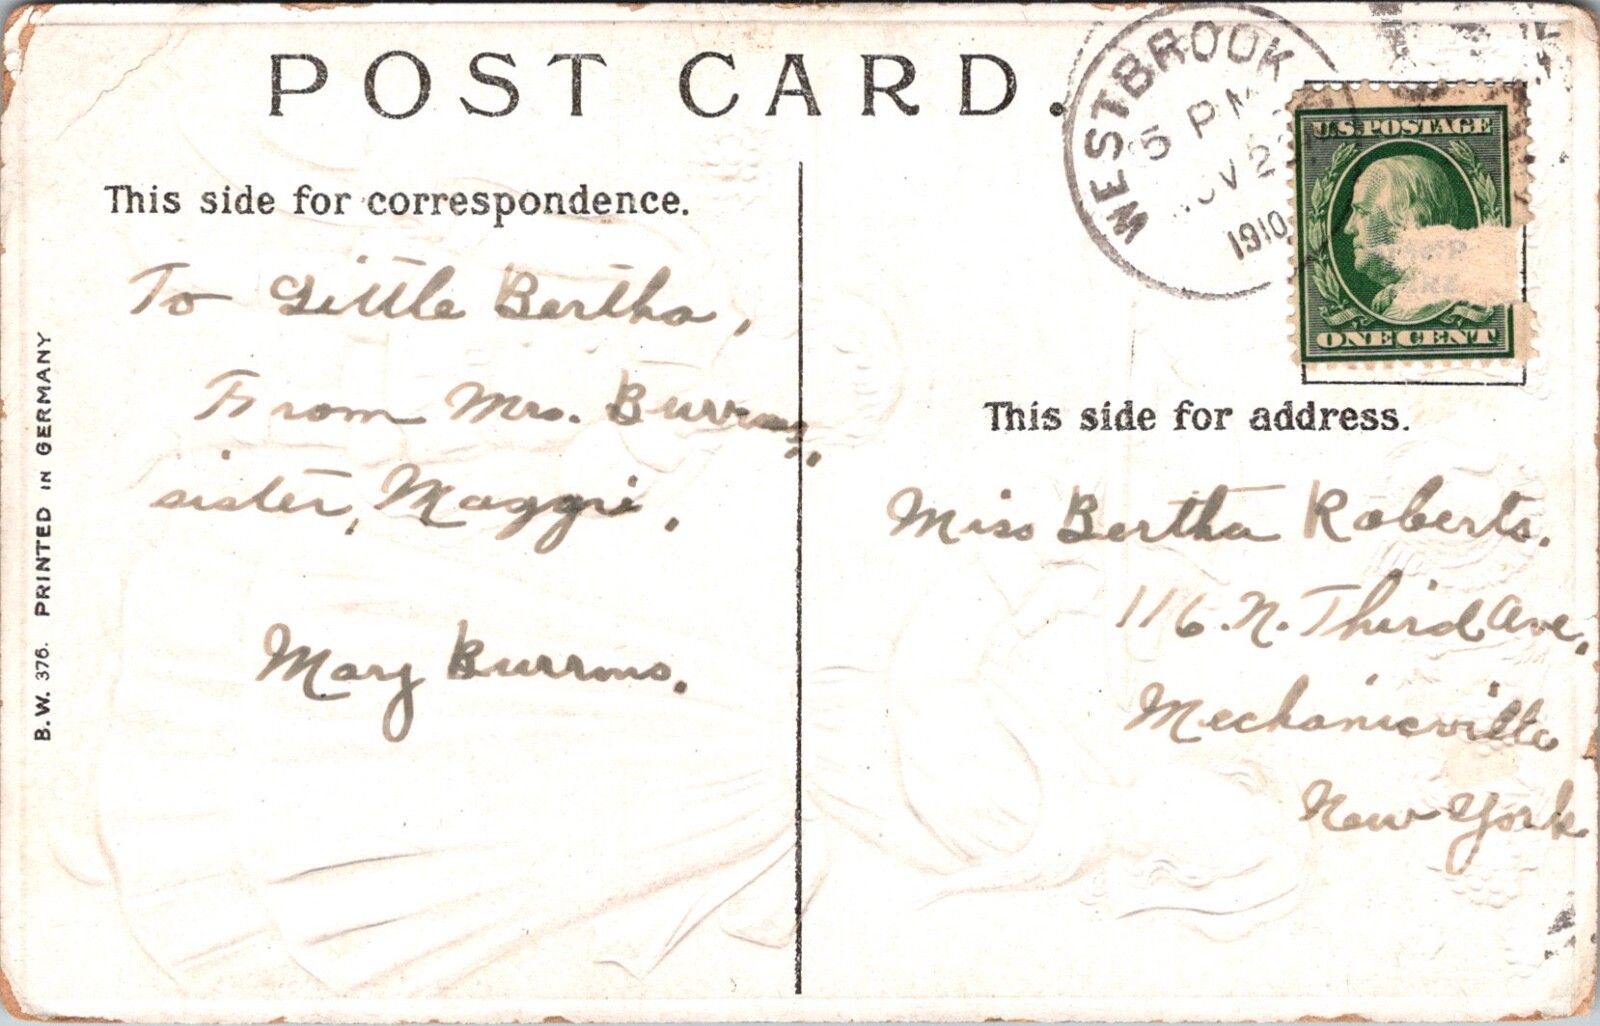 POST CARD.
WESTBROOK
5 PM
NOV 2
1910
U.S. POSTAGE
ONE CENT
This side for correspondence.
To Little Bertha,
From Mrs.
sister, Maggie.
Mary Burrows.
This side for address.
Miss Bertha Roberts.
116. N. Third Ave.,
Mechanicville
New York
B.W. 376. PRINTED IN GERMANY